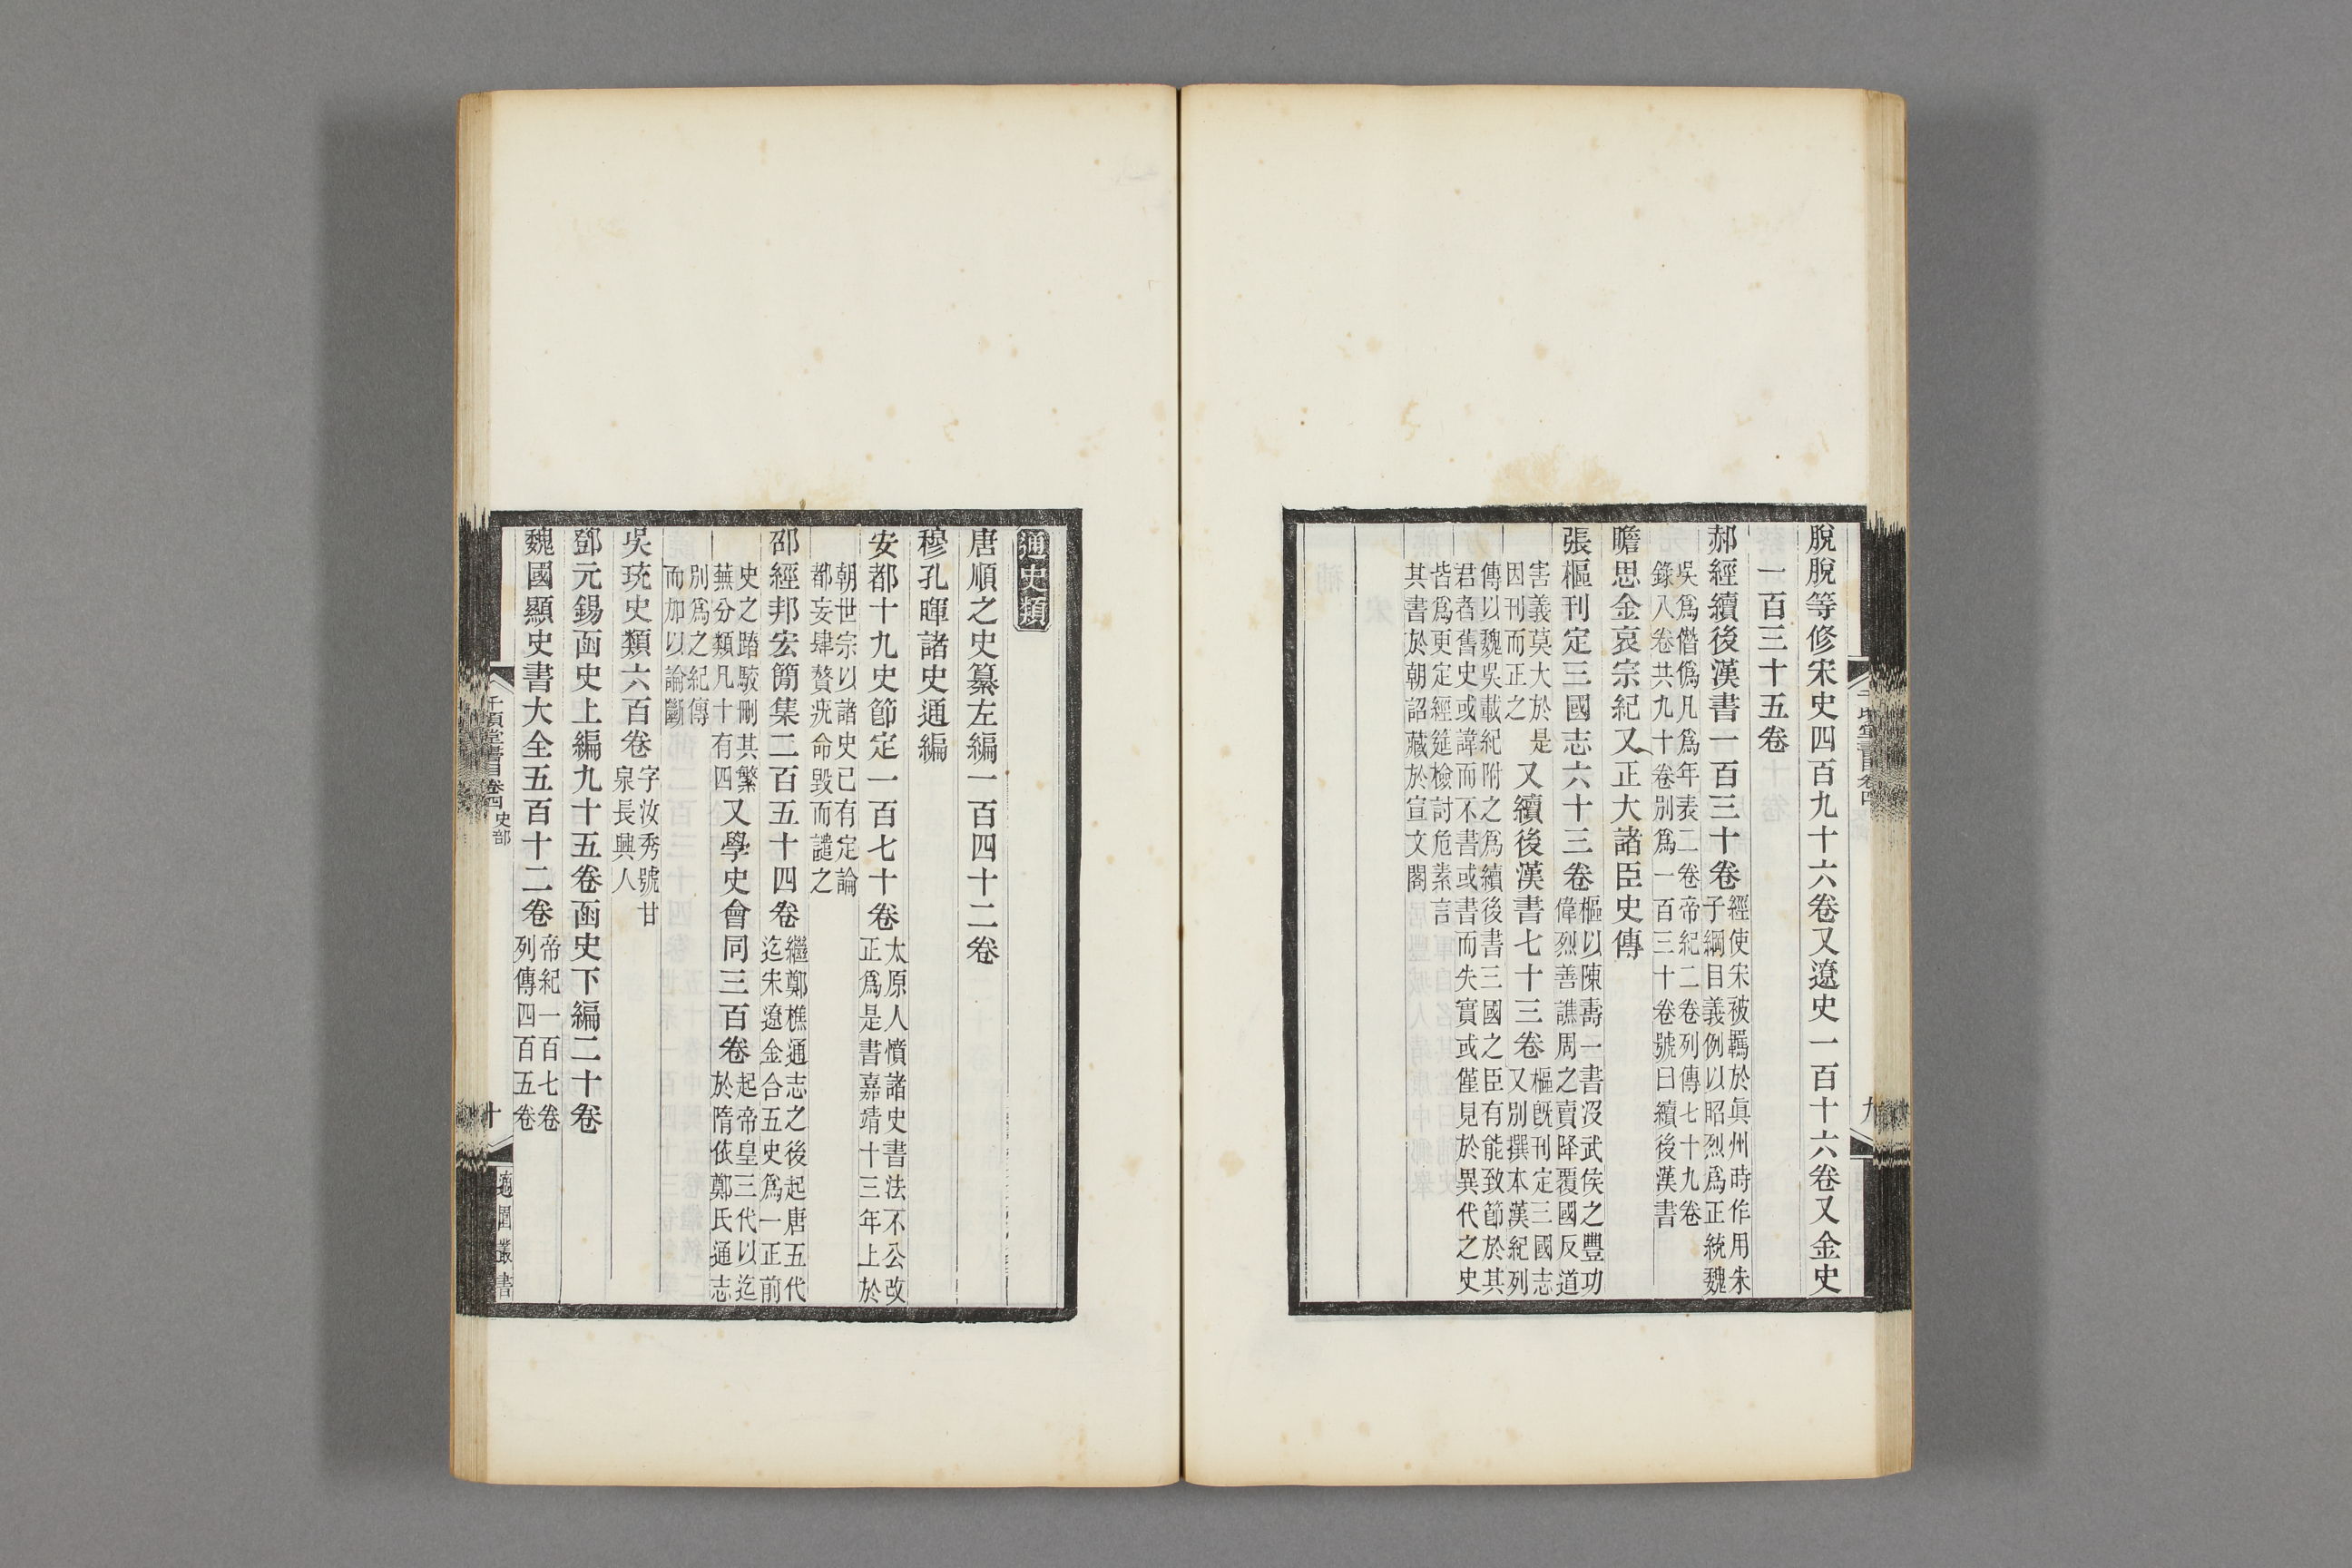 脫脫等修宋史四百九十六卷又遼史一百十六卷又金史
一百三十五卷
郝經續後漢書一百三十卷經使宋被羈於眞州時作用朱
子綱目義例以昭烈爲正統魏
吳爲僭僞凡爲年表二卷帝紀二卷列傳七十九卷
錄八卷共九十卷別爲一百三十卷號曰續後漢書
瞻思金哀宗紀又正大諸臣史傳
張樞刊定三國志六十三卷樞以陳壽一書沒武侯之豐功
偉烈善譙周之賣降覆國反道
害義莫大於是
因刊而正之
又續後漢書七十三卷樞旣刊定三國志
又別撰本漢紀列
傳以魏吳載紀附之爲續後書三國之臣有能致節於其
君者舊史或諱而不書或書而失實或僅見於異代之史
皆爲更定經筵檢討危素言
其書於朝詔藏於宣文閣
千頃堂書目卷四
九
通史類
唐順之史纂左編一百四十二卷
穆孔暉諸史通編
安都十九史節定一百七十卷太原人憤諸史書法不公改
正爲是書嘉靖十三年上於
朝世宗以諸史已有定論
都妄肆贅疣命毀而譴之
邵經邦宏簡集二百五十四卷繼鄭樵通志之後起唐五代
迄宋遼金合五史爲一正前
史之踳駁刪其繁
蕪分類凡十有四
又學史會同三百卷起帝皇三代以迄
於隋依鄭氏通志
別爲之紀傳
而加以論斷
吳珫史類六百卷字汝秀號甘
泉長興人
鄧元錫函史上編九十五卷函史下編二十卷
魏國顯史書大全五百十二卷帝紀一百七卷
列傳四百五卷
千頃堂書目卷四 史部
十
適園叢書